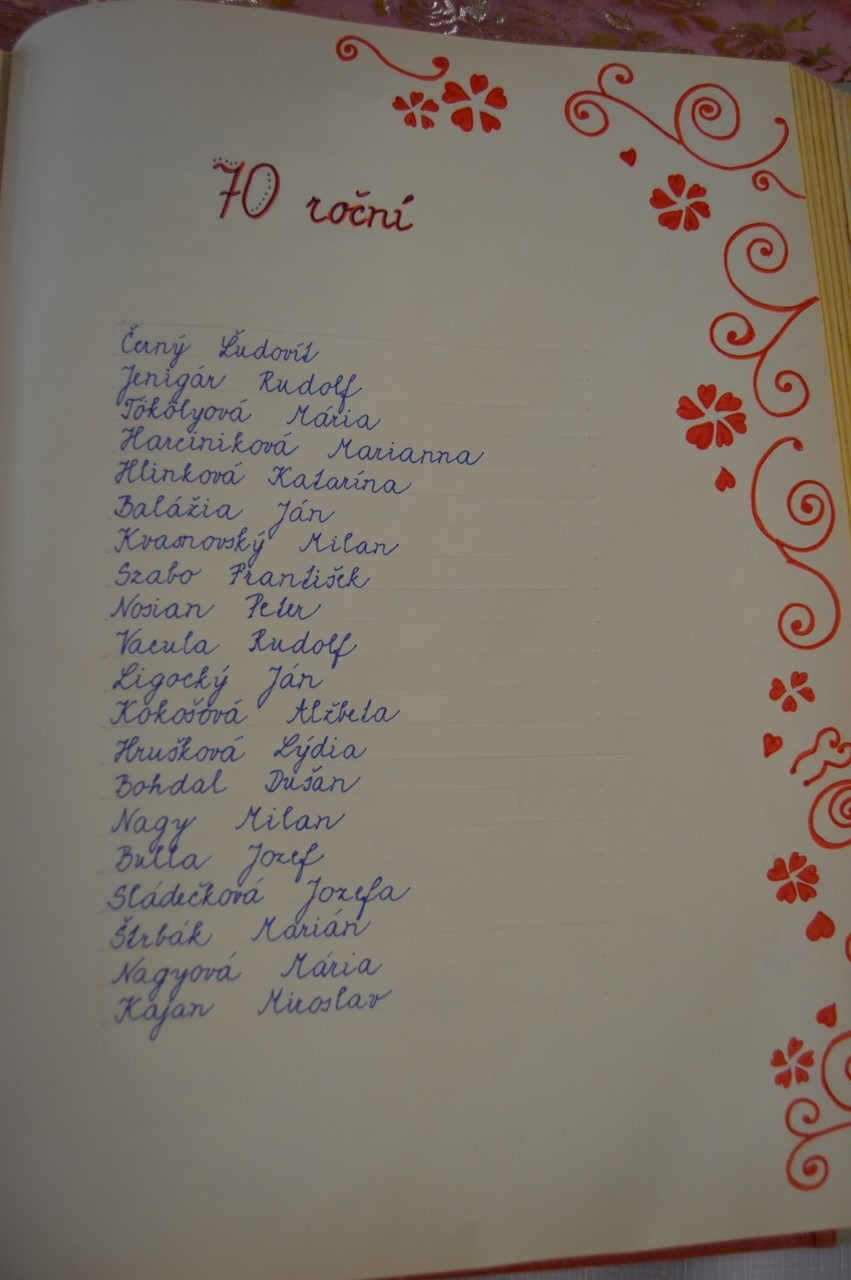 70 roční
Černý Ľudovít
Jenigár Rudolf
Tökölyová Mária
Harciniková Marianna
Hlinková Katarína
Balážia Ján
Kvasnovský Milan
Szabo František
Nosian Peter
Vacula Rudolf
Ligocký Ján
Kokošová Alžbeta
Hrušková Lýdia
Bohdal Dušan
Nagy Milan
Bulla Jozef
Sládečková Jozefa
Štrbák Marián
Nagyová Mária
Kajan Miroslav